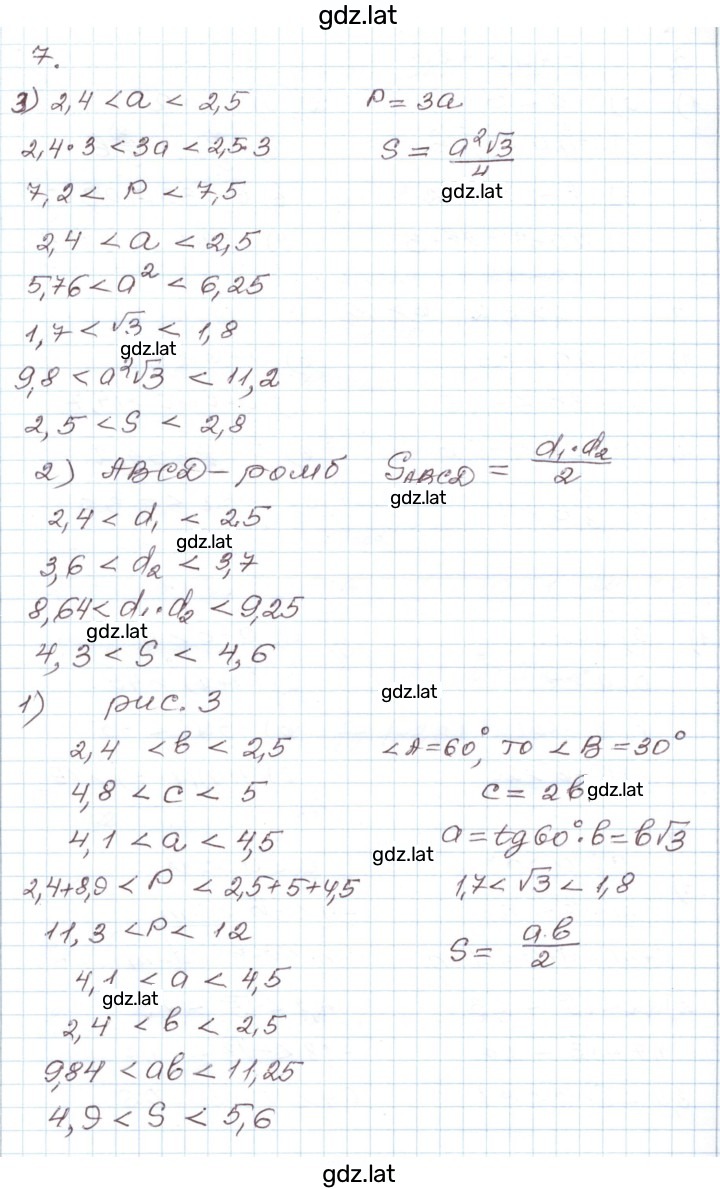 gdz.lat
7.
3) 2,4 < a < 2,5 P = 3a
2,4·3 < 3a < 2,5·3 S = a²√3/4
gdz.lat
7,2 < P < 7,5
2,4 < a < 2,5
5,76 < a² < 6,25
1,7 < √3 < 1,8
gdz.lat
9,8 < a²√3 < 11,2
2,5 < S < 2,8
2) ABCD – ромб S_ABCD = d₁·d₂/2
gdz.lat
2,4 < d₁ < 2,5
gdz.lat
3,6 < d₂ < 3,7
8,64 < d₁·d₂ < 9,25
gdz.lat
4,3 < S < 4,6
gdz.lat
1) рис. 3
2,4 < b < 2,5 <A=60°, то <B=30°
4,8 < c < 5 c = 2b
gdz.lat
4,1 < a < 4,5 a = tg60°·b = b√3
gdz.lat
2,4+8,9 < P < 2,5+5+4,5 1,7 < √3 < 1,8
11,3 < P < 12 S = a·b/2
4,1 < a < 4,5
gdz.lat
2,4 < b < 2,5
9,84 < ab < 11,25
4,9 < S < 5,6
gdz.lat